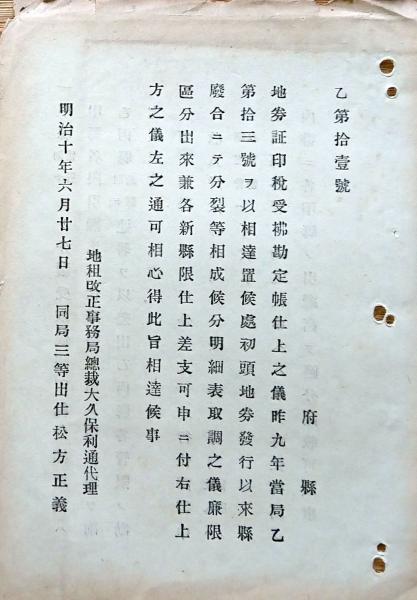 乙第拾壹號
府縣
地券証印税受拂勘定帳仕上之儀昨九年當局乙
第拾三號ヲ以相達置候處初頭地券發行以來縣
廢合ニテ分裂等相成候分明細表取調之儀廉限
區分出來兼各新縣限仕上差支可申ニ付右仕上
方之儀左之通可相心得此旨相達候事
地租改正事務局總裁大久保利通代理
明治十年六月廿七日 同局三等出仕松方正義